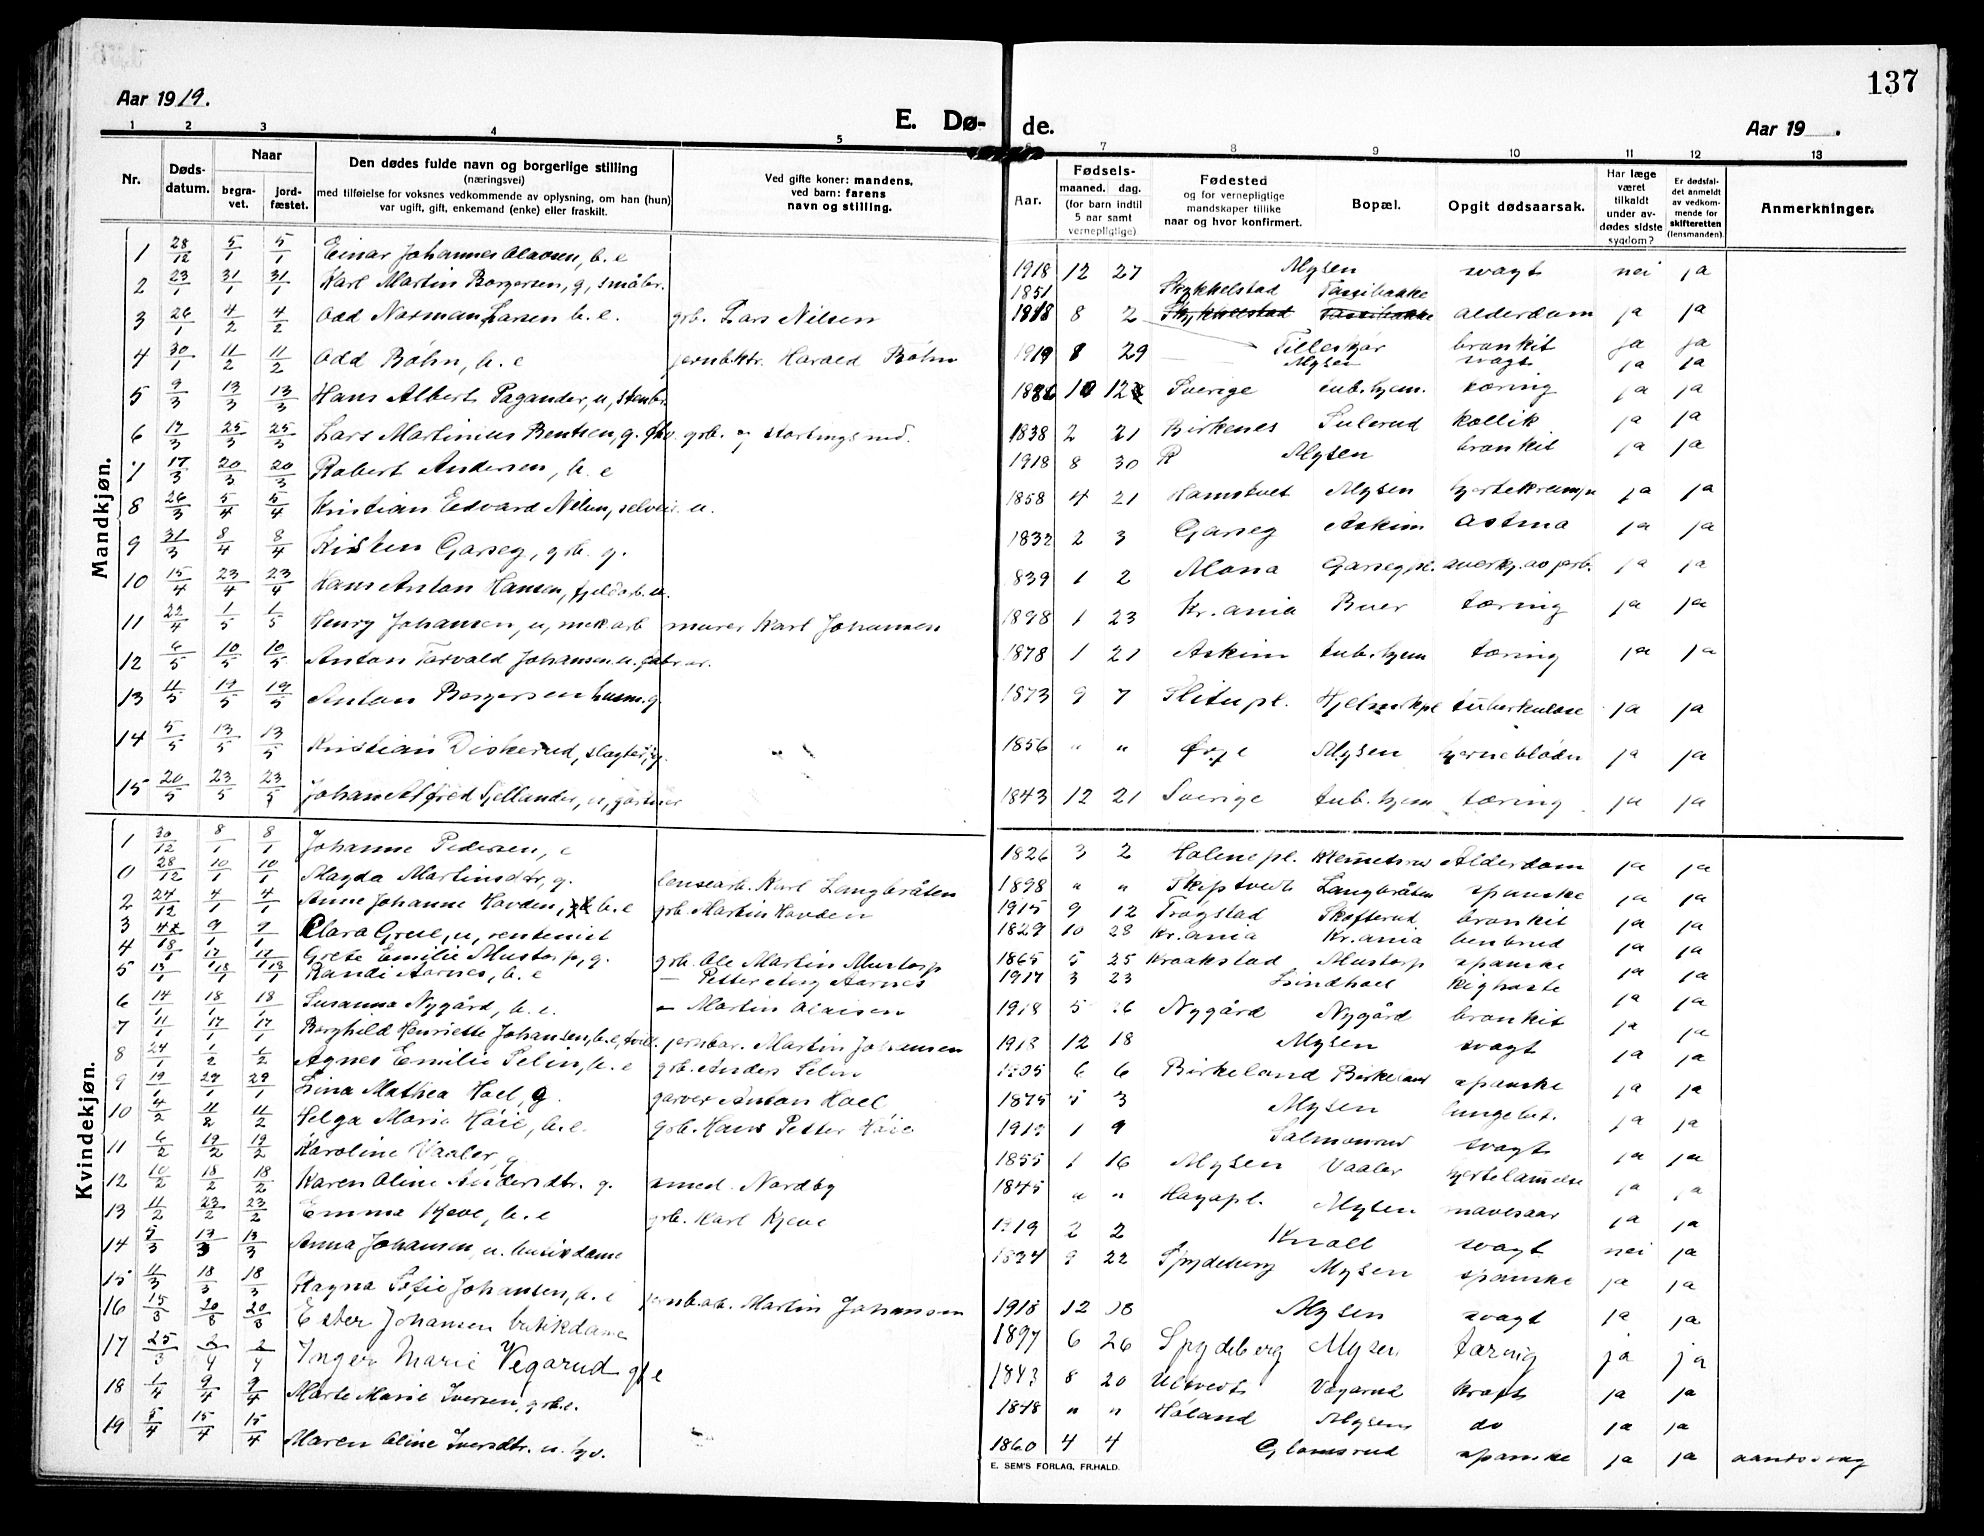 137
Aar 1919.
E. Dø- de.
Aar 19 .
1 2 3 4 5 6 7 8 9 10 11 12 13
Nr.
Døds-
datum.
Naar
begra-
vet.
jord-
fæstet.
Den dødes fulde navn og borgerlige stilling
(næringsvei)
med tilføielse for voksnes vedkommende av oplysning, om han (hun)
var ugift, gift, enkemand (enke) eller fraskilt.
Ved gifte koner: mandens,
ved barn: farens
navn og stilling.
Aar.
Fødsels-
maaned. dag.
(for barn indtil
5 aar samt
vernepligtige)
Fødested
og for vernepligtige
mandskaper tillike
naar og hvor konfirmert.
Bopæl.
Opgit dødsaarsak.
Har læge
været
tilkaldt
under av-
dødes sidste
sygdom?
Er dødsfal-
det anmeldt
av vedkom-
mende for
skifteretten
(lensmanden).
Anmerkninger.
Mandkjøn.
1 28/12 5/1 5/1 Einar Johannes Olavsen, b. e 1918 12 27 Mysen svagt nei ja
2 23/1 31/1 31/1 Karl Martin Borgersen, g, småbr. 1851 Skykkelstad Tassibakke
3 26/1 4/2 4/2 Odd Norman Larsen b. e. grb. Lars Nilsen 1918 8 2 Skykkelstad Tassibakke alderdom ja ja
4 30/1 11/2 11/2 Odd Bøhn, b. e jernb.ktr. Harald Bøhn 1919 8 29 Tilleskjør bronkit ja ja
Mysen svagt ja ja
5 9/3 13/3 13/3 Hans Albert Pagander, u, stenbr. 1886 10 12 Sverige tub. hjem. tæring ja ja
6 17/3 25/3 25/3 Lars Martinius Bentsen, g. fhv. grb. og stortingsmd. 1838 2 21 Birkenes Sulerud kollik ja ja
7 17/3 20/3 20/3 Robert Andersen, b. e 1918 8 30 R Mysen bronkit ja ja
8 26/3 5/4 5/4 Kristian Edvard Nilsen, selveier u. 1858 4 21 Hamstvet Mysen hjertekrampe ja ja
9 31/3 8/4 8/4 Kristen Garseg, grb. g. 1832 2 3 Garseg Askim astma ja ja
10 15/4 23/4 23/4 Hans Anton Hansen, fjeldarb. u. 839 1 2 Mona Garseg pl. ja ja
11 22/4 1/5 1/5 Henry Johansen, u, mek. arb murer Karl Johansen 1898 1 23 Kr.ania Buer tæring ja ja
12 6/5 10/5 10/5 Anton Torvald Johansen u. fabr. ar. 1878 1 21 Askim tub. hjem tæring ja ja
13 11/5 19/5 19/5 Anton Borgersen husm. g. 1873 9 7 Slitu pl. Hjelmark pl tuberkulose ja ja
14 5/5 13/5 13/5 Kristian Diskerud, slagter, g. " 1856 " " Ørje Mysen hjerneblødn ja ja
15 20/5 23/5 23/5 Johan Alfred Sjellander, u, gartner 1843 12 21 Sverige tub. hjem tæring ja ja
Kvindekjøn.
1 30/12 8/1 8/1 Johanne Pedersen, e 1826 3 2 Holene pl. Klemetsrud Alderdom ja ja
0 28/12 10/1 10/1 Magda Martinsdtr, g. lensearb. Karl Langbråten 1898 " " Skiptvedt Langbråten spanske ja ja
2 24/12 4/1 4/1 Anne Johanne Havden, b. e grb. Martin Havden 1915 9 12 Trøgstad Skofterud bronkit ja ja
3 9/1 Clara Greve, u, rentenist 1829 10 28 Kr.ania Kr.ania benbrud ja ja
4 18/1 17/1 17/1 Grete Emilie Mustorp, g. grb. Ole Martin Mustorp 1865 5 25 Kraakstad Mustorp spanske ja ja
5 13/1 Randi Aarnes, b. e — Petter Aug Aarnes 1917 3 23 Lindhoel kighoste ja ja
6 14/1 18/1 18/1 Susanna Nygård, b. e. — Martin Olaisen 1918 5 Nygård Nygård bronkit ja ja
7 11/1 17/1 17/1 Borghild Henriette Johansen, b. e, tvill. jernbar. Martin Johansen 1918 12 18 Mysen svagt ja ja
8 24/1 1/2 1/2 Agnes Emilie Selin, b. e grb. Anders Selin 6 6 Birkeland Birkeland spanske ja ja
9 19/1 29/1 29/1 Lina Mathea Hoel, g. garver Anton Hoel 1875 3 Mysen lungebet. ja ja
10 4/2 11/2 11/2 Helga Marie Høie, b. e. grb. Hans Petter Høie 1 9 Salmonrud svagt ja ja
11 6/2 19/2 19/2 Karoline Vaaler, g 1855 1 16 Mysen Vaaler hjertelammelse ja ja
12 10/2 18/2 18/2 Karen Oline Andersdtr. g. smed. Nordby 1845 " " Haga pl. Mysen mavesaar ja ja
13 11/2 23/2 23/2 Emma Kjeve, b. e grb. Karl Kjeve 1919 2 2 Knoll svagt nei ja
14 5/3 13/3 13/3 Anna Johansen, u. butikdame 22 Spydeberg Mysen spanske ja ja
15 11/3 18/3 18/3 Ragna Sofie Johansen, b. e jernb.ab. Martin Johanson 1918 12 18 Mysen svagt ja ja
16 15/3 20/3 20/3 Ester Johansen butikdame 1897 6 26 Spydeberg Mysen tæring ja ja
17 25/3 2/4 2/4 Inger Marie Vegarud gb e 1843 8 20 Ultvedt Vegarud kræft ja ja
18 1/4 9/4 9/4 Marte Marie Iversen, grb.e. 1848 " " Høland Mysen do ja ja
19 5/4 15/4 15/4 Maren Oline Iversdtr. u. 1860 4 4 Glomsrud spanske ja ja aandssvag
E. SEM'S FORLAG, FR.HALD.